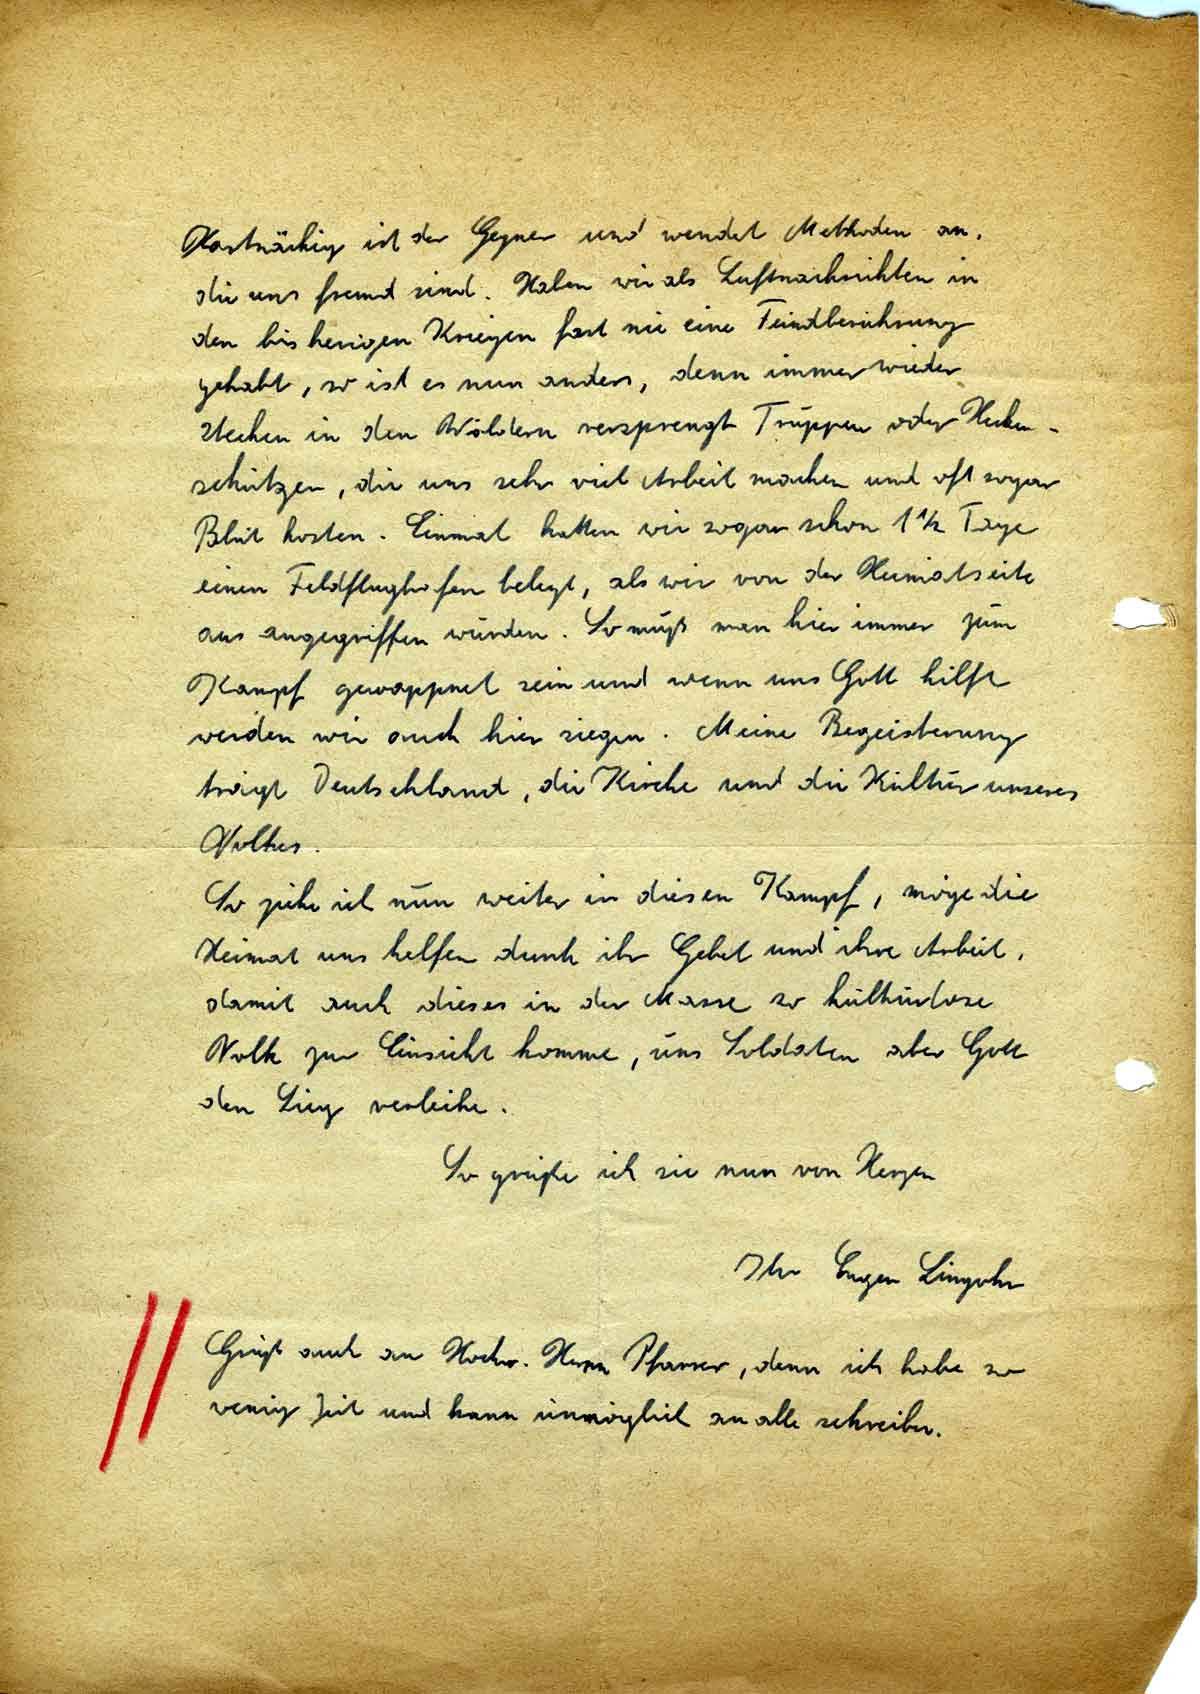 Hartnäckig ist der Gegner und wendet Methoden an,
die uns fremd sind. Haben wir als Luftnachrichten in
den bisherigen Kriegen fast nie eine Feindberührung
gehabt, so ist es nun anders, denn immer wieder
stecken in den Wäldern versprengt Truppen oder Hecken-
schützen, die uns sehr viel Arbeit machen und oft sogar
Blut kosten. Einmal hatten wir sogar schon 1 1/2 Tage
einen Feldflughafen belegt, als wir von der Heimatseite
aus angegriffen wurden. So muß man hier immer zum
Kampf gewappnet sein und wenn uns Gott hilft
werden wir auch hier siegen. Meine Begeisterung
trägt Deutschland, die Kirche und die Kultur unseres
Volkes.
So ziehe ich nun weiter in diesen Kampf, möge die
Heimat uns helfen durch ihr Gebet und ihre Arbeit,
damit auch dieses in der Masse so kulturlose
Volk zur Einsicht komme, uns Soldaten aber Gott
den Sieg verleihe.
So grüße ich sie nun von Herzen
Ihr Eugen Lingohr
Gruß auch an Hochw. Herrn Pfarrer, denn ich habe so
wenig Zeit und kann unmöglich an alle schreiben.